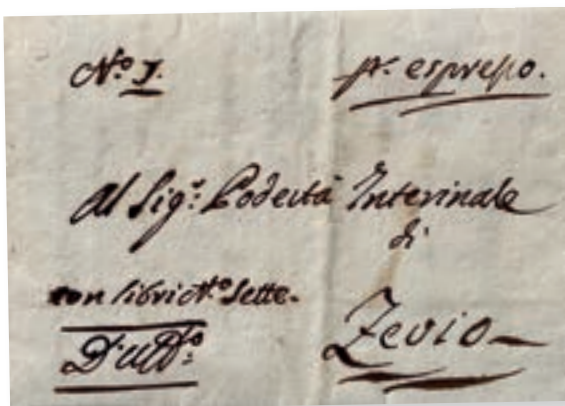 N.º 7.
pr. espresso.
Al Sig.r Podestà Interinale
di
con libri N.º Sette.
Zevio
D'uff.º